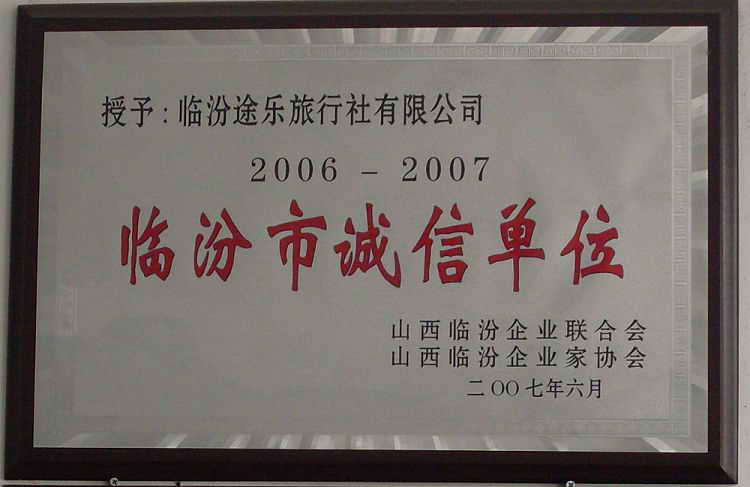 授予:临汾途乐旅行社有限公司
2006 – 2007
临汾市诚信单位
山西临汾企业联合会
山西临汾企业家协会
二OO七年六月